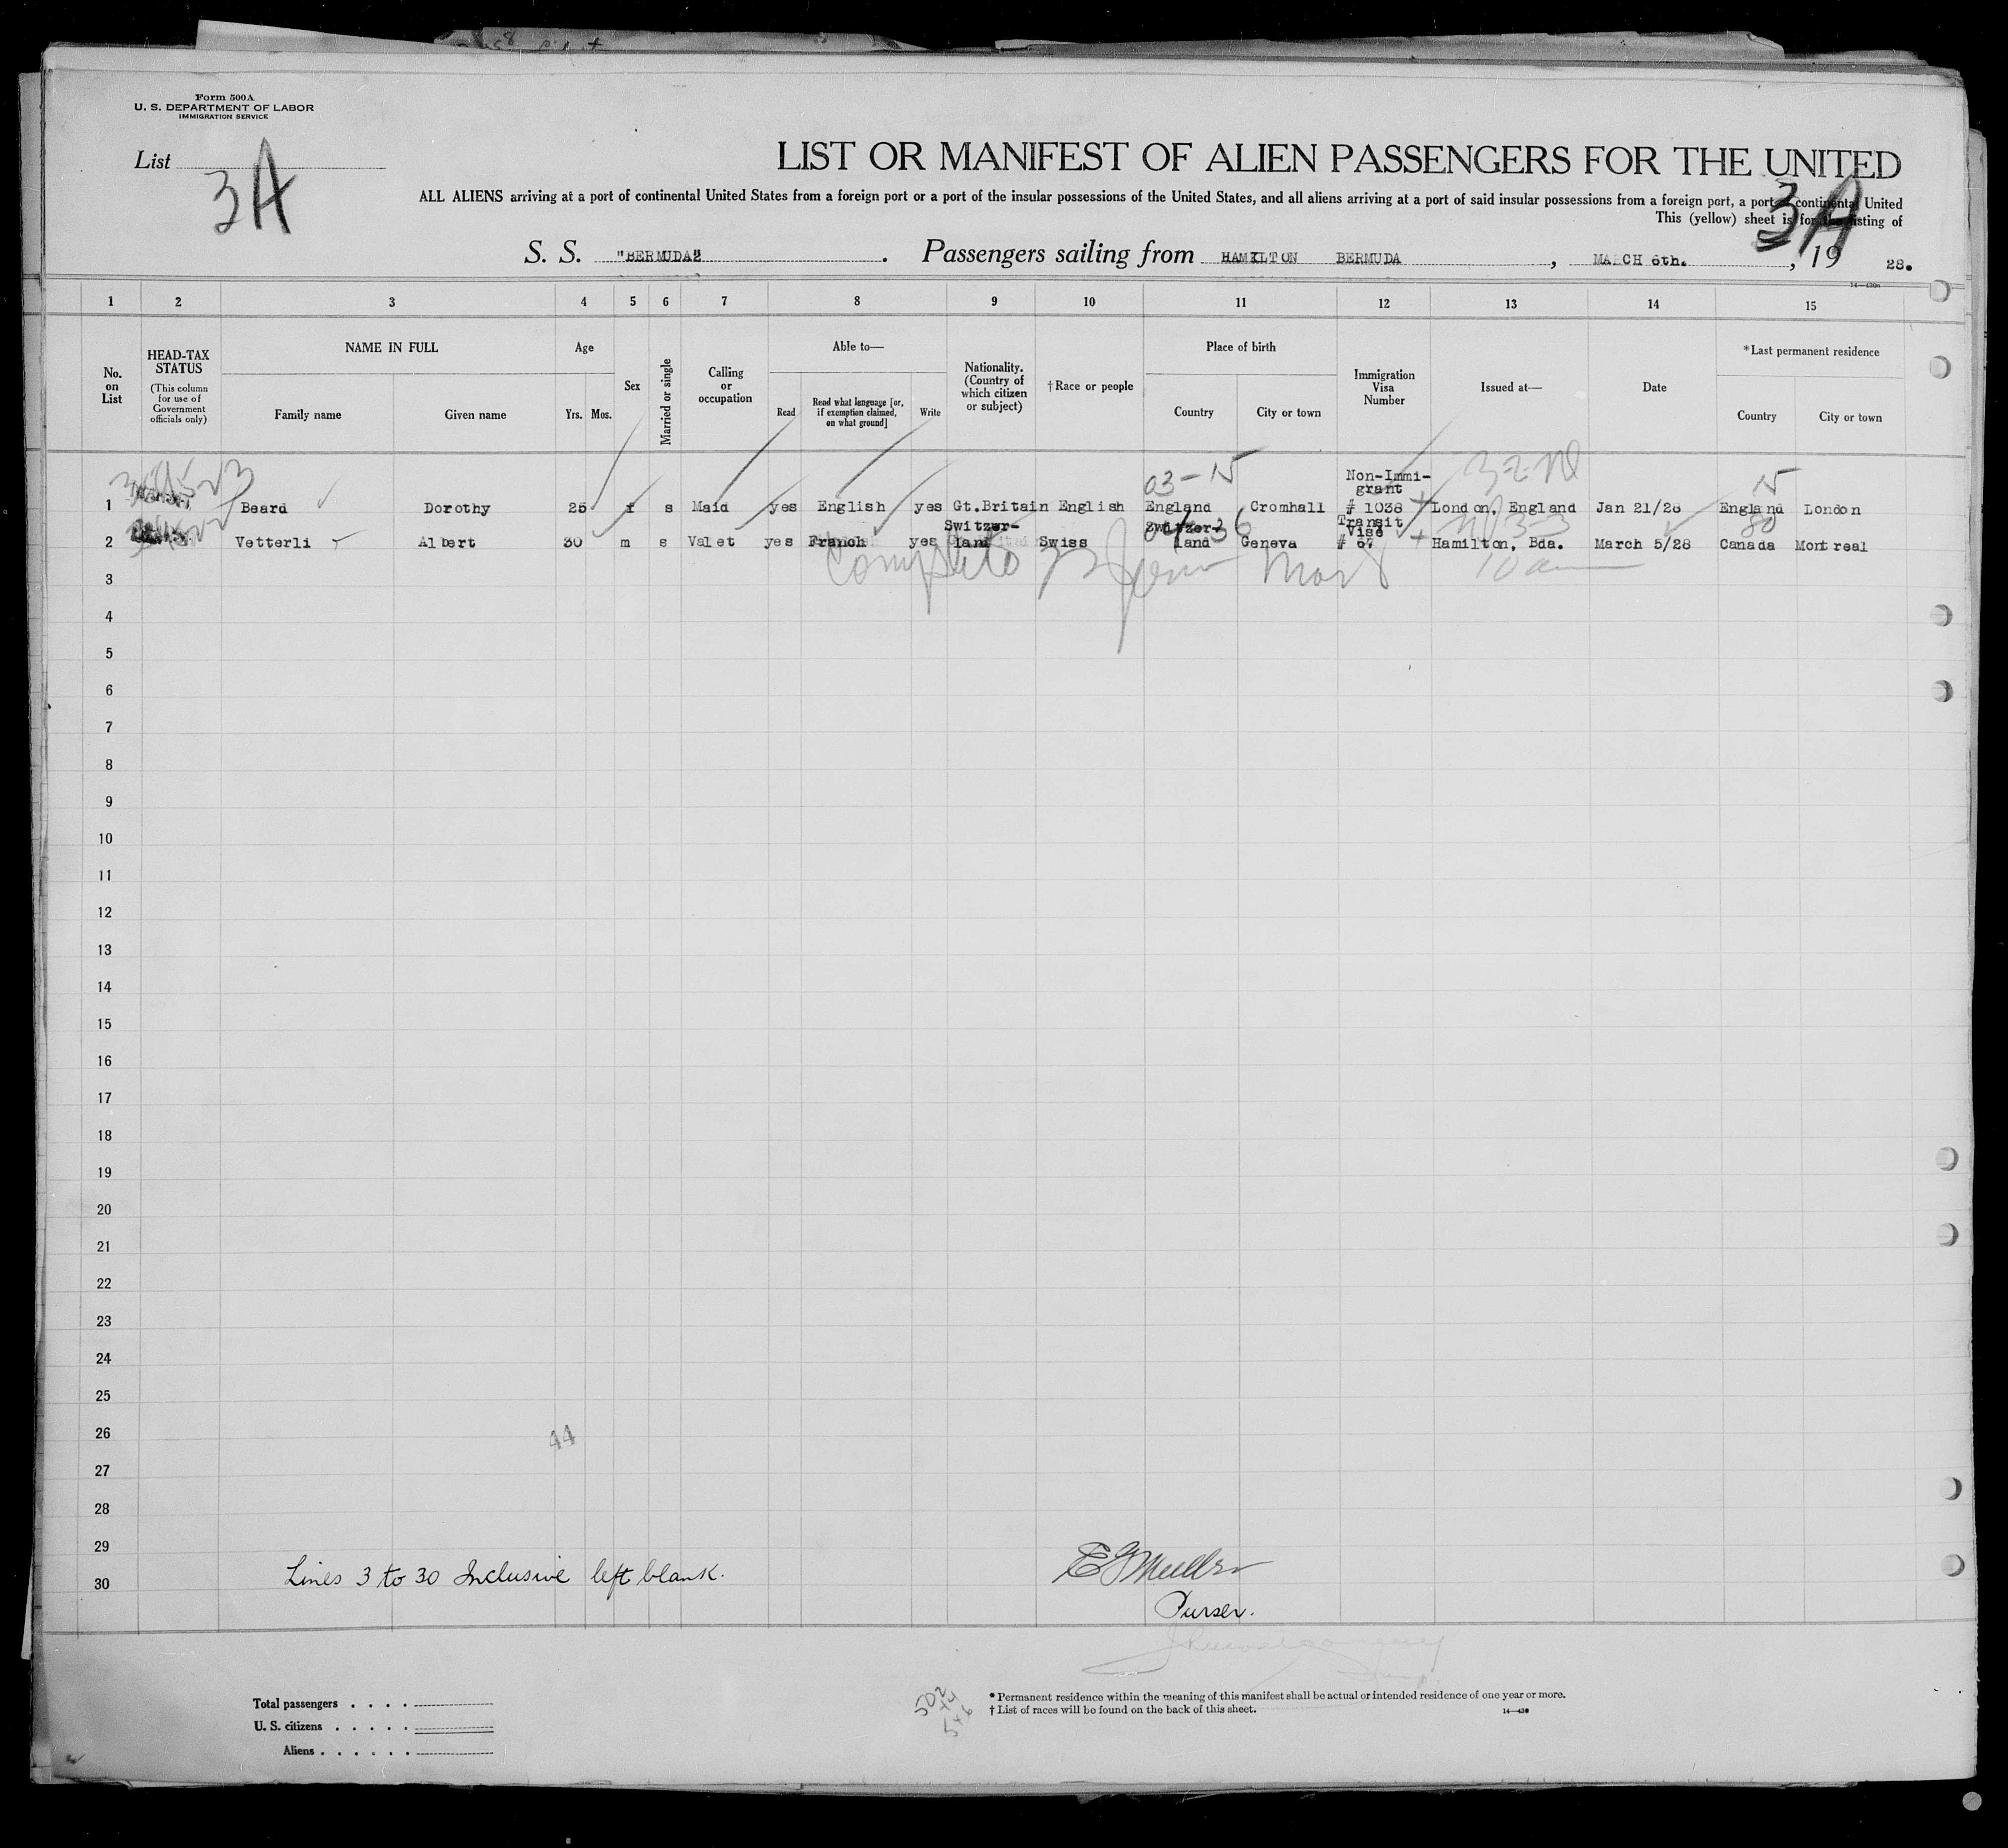 Form 500A
U. S. DEPARTMENT OF LABOR
IMMIGRATION SERVICE
List 3A
LIST OR MANIFEST OF ALIEN PASSENGERS FOR THE UNITED
ALL ALIENS arriving at a port of continental United States from a foreign port or a port of the insular possessions of the United States, and all aliens arriving at a port of said insular possessions from a foreign port, a port of continental United
This (yellow) sheet is for the listing of
3A
S. S. "BERMUDA" . Passengers sailing from HAMILTON BERMUDA , MARCH 6th. , 19 28.
1 2 3 4 5 6 7 8 9 10 11 12 13 14 15
No. on List
HEAD-TAX STATUS
(This column for use of Government officials only)
NAME IN FULL
Family name Given name
Age
Yrs. Mos.
Sex
Married or single
Calling or occupation
Able to—
Read Read what language [or, if exemption claimed, on what ground] Write
Nationality. (Country of which citizen or subject)
†Race or people
Place of birth
Country City or town
Immigration Visa Number
Issued at—
Date
*Last permanent residence
Country City or town
03-15 15
Non-Immi-
grant
1 Beard Dorothy 25 f s Maid yes English yes Gt.Britain English England Cromhall # 1038 London, England Jan 21/28 England London
Switzer- Switzer- Transit Vise 80
2 Vetterli Albert 30 m s Valet yes French yes land Swiss land Geneva # 67 Hamilton, Bda. March 5/28 Canada Montreal
3
4
5
6
7
8
9
10
11
12
13
14
15
16
17
18
19
20
21
22
23
24
25
26
44
27
28
29
30
Lines 3 to 30 Inclusive left blank.
E G Muller
Purser.
Total passengers . . . .
U. S. citizens . . . . .
Aliens . . . . . .
502
44
546
* Permanent residence within the meaning of this manifest shall be actual or intended residence of one year or more.
† List of races will be found on the back of this sheet.
14—430